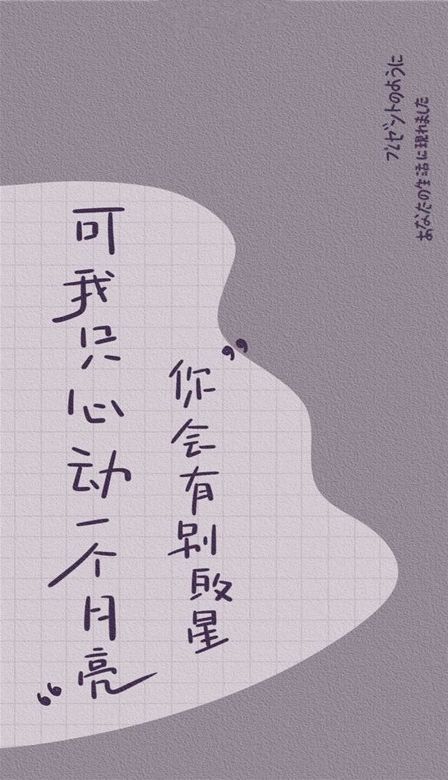 プレゼントのように
あなたの生活に現れました
”你会有别星
可我只心动一个月亮“